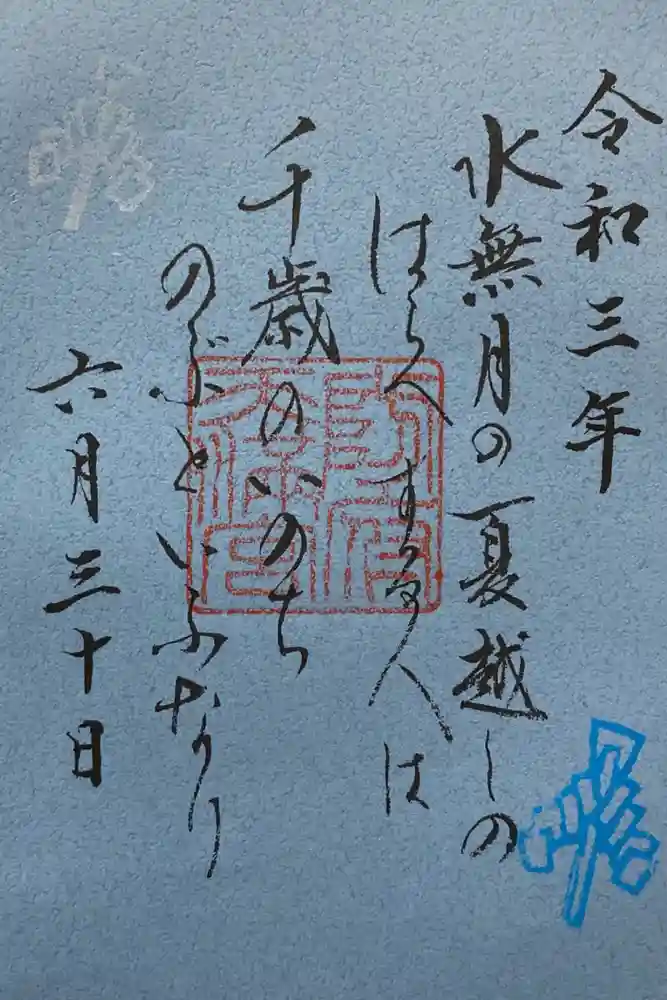 令和三年
水無月の夏越しの
はらへする人は
千歳のいのち
のぶといふなり
六月三十日